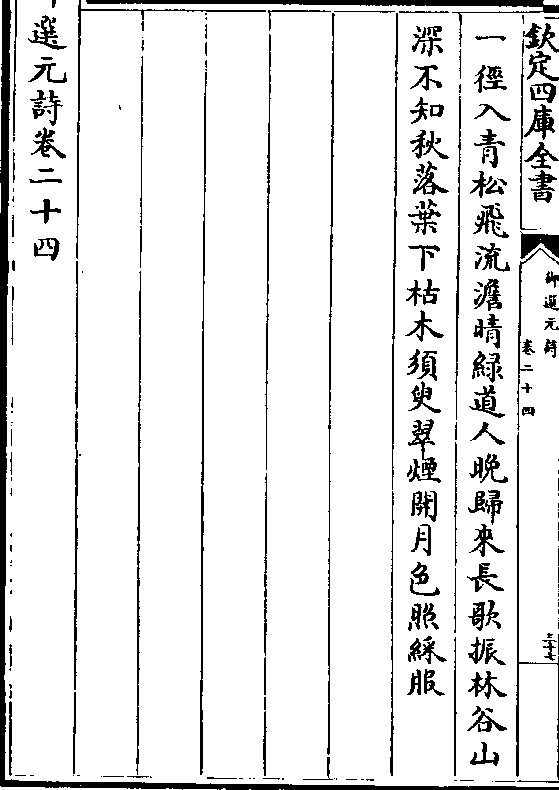 欽定四庫全書
御選元詩
卷二十四
三十七
一徑入青松飛流澹晴綠道人晚歸來長歌振林谷山
深不知秋落葉下枯木須臾翠煙開月色照綵服
選元詩卷二十四